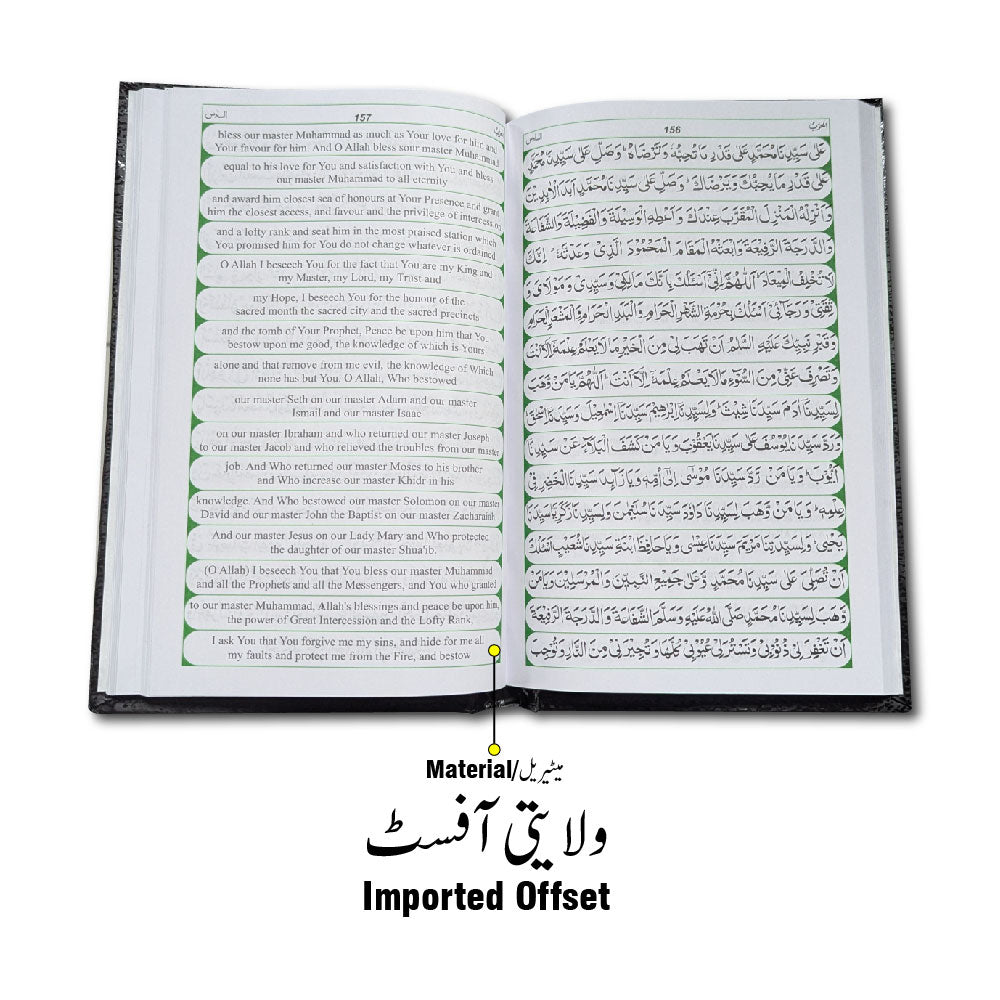 السادس
157
الحزب
bless our master Muhammad as much as Your love for him and
Your favour for him. And O Allah bless sour master Muhammad
equal to his love for You and satisfaction with You and bless
our master Muhammad to all eternity
and award him closest sea of honours at Your Presence and grand
him the closest access, and favour and the privilege of intercession
and a lofty rank and seat him in the most praised station which
You promised him for You do not change whatever is ordained
O Allah I beseech You for the fact that You are my King and
my Master, my Lord, my Trust and
my Hope, I beseech You for the honour of the
sacred month the sacred city and the sacred precincts
and the tomb of Your Prophet, Peace be upon him that You
bestow upon me good, the knowledge of which is Yours
alone and that remove from me evil, the knowledge of Which
none has but You. O Allah, Who bestowed
our master Seth on our master Adam and our master
Ismail and our master Isaac
on our master Ibraham and who returned our master Joseph
to our master Jacob and who relieved the troubles from our master
job. And Who returned our master Moses to his brother
and Who increase our master Khidr in his
knowledge. And Who bestowed our master Solomon on our master
David and our master John the Baptist on our master Zachariah
And our master Jesus on our Lady Mary and Who protected
the daughter of our master Shua'ib.
(O Allah) I beseech You that You bless our master Muhammad
and all the Prophets and all the Messengers, and You who granted
to our master Muhammad, Allah's blessings and peace be upon him,
the power of Great Intercession and the Lofty Rank,
I ask You that You forgive me my sins, and hide for me all
my faults and protect me from the Fire, and bestow
السادس
156
الحزب
عَلٰى سَيِّدِنَا مُحَمَّدٍ عَلٰى قَدْرِ مَا تُحِبُّهٗ وَتَرْضَاهُ وَصَلِّ عَلٰى سَيِّدِنَا مُحَمَّدٍ
عَلٰى قَدْرِ مَا يُحِبُّكَ وَيَرْضَاكَ وَصَلِّ عَلٰى سَيِّدِنَا مُحَمَّدٍ اَبَدَ الْاٰبِدِيْنَ
وَاَنْزِلْهُ الْمَنْزِلَ الْمُقَرَّبَ عِنْدَكَ وَاَعْطِهِ الْوَسِيْلَةَ وَالْفَضِيْلَةَ وَالشَّفَاعَةَ
وَالدَّرَجَةَ الرَّفِيْعَةَ وَابْعَثْهُ الْمَقَامَ الْمَحْمُوْدَ الَّذِيْ وَعَدْتَّهٗ اِنَّكَ
لَا تُخْلِفُ الْمِيْعَادَ اَللّٰهُمَّ اِنِّيْ اَسْئَلُكَ بِاَنَّكَ مَالِكِيْ وَسَيِّدِيْ وَمَوْلَايَ وَ
ثِقَتِيْ وَرَجَائِيْ اَسْئَلُكَ بِحُرْمَةِ الشَّهْرِ الْحَرَامِ وَالْبَلَدِ الْحَرَامِ وَالْمَشْعَرِ الْحَرَامِ
وَقَبْرِ نَبِيِّكَ عَلَيْهِ السَّلَامُ اَنْ تَهَبَ لِيْ مِنَ الْخَيْرِ مَا لَا يَعْلَمُ عِلْمَهٗ اِلَّا اَنْتَ
وَتَصْرِفَ عَنِّيْ مِنَ السُّوْٓءِ مَا لَا يَعْلَمُ عِلْمَهٗ اِلَّا اَنْتَ اَللّٰهُمَّ يَا مَنْ وَّهَبَ
لِسَيِّدِنَا اٰدَمَ سَيِّدَنَا شِيْثَ وَلِسَيِّدِنَا اِبْرَاهِيْمَ سَيِّدَنَا اِسْمٰعِيْلَ وَسَيِّدَنَا اِسْحٰقَ
وَرَدَّ سَيِّدَنَا يُوْسُفَ عَلٰى سَيِّدِنَا يَعْقُوْبَ وَيَا مَنْ كَشَفَ الْبَلَآءَ عَنْ سَيِّدِنَا
اَيُّوْبَ وَيَا مَنْ رَدَّ سَيِّدَنَا مُوْسٰى اِلٰى اُمِّهٖ وَيَا زَآئِدَ سَيِّدِنَا الْخَضِرِ فِيْ
عِلْمِهٖ وَيَا مَنْ وَّهَبَ لِسَيِّدِنَا دَاوٗدَ سَيِّدَنَا سُلَيْمٰنَ وَلِسَيِّدِنَا زَكَرِيَّا سَيِّدَنَا
يَحْيٰى وَلِسَيِّدَتِنَا مَرْيَمَ سَيِّدَنَا عِيْسٰى وَيَا حَافِظَ ابْنَةِ سَيِّدِنَا شُعَيْبٍ اَسْئَلُكَ
اَنْ تُصَلِّيَ عَلٰى سَيِّدِنَا مُحَمَّدٍ وَّعَلٰى جَمِيْعِ النَّبِيّٖنَ وَالْمُرْسَلِيْنَ وَيَا مَنْ
وَّهَبَ لِسَيِّدِنَا مُحَمَّدٍ صَلَّى اللّٰهُ عَلَيْهِ وَسَلَّمَ الشَّفَاعَةَ وَالدَّرَجَةَ الرَّفِيْعَةَ
اَنْ تَغْفِرَ لِيْ ذُنُوْبِيْ وَتَسْتُرَ لِيْ عُيُوْبِيْ كُلَّهَا وَتُجِيْرَنِيْ مِنَ النَّارِ وَتُوْجِبَ
Material/میٹیریل
ولایتی آفسٹ
Imported Offset